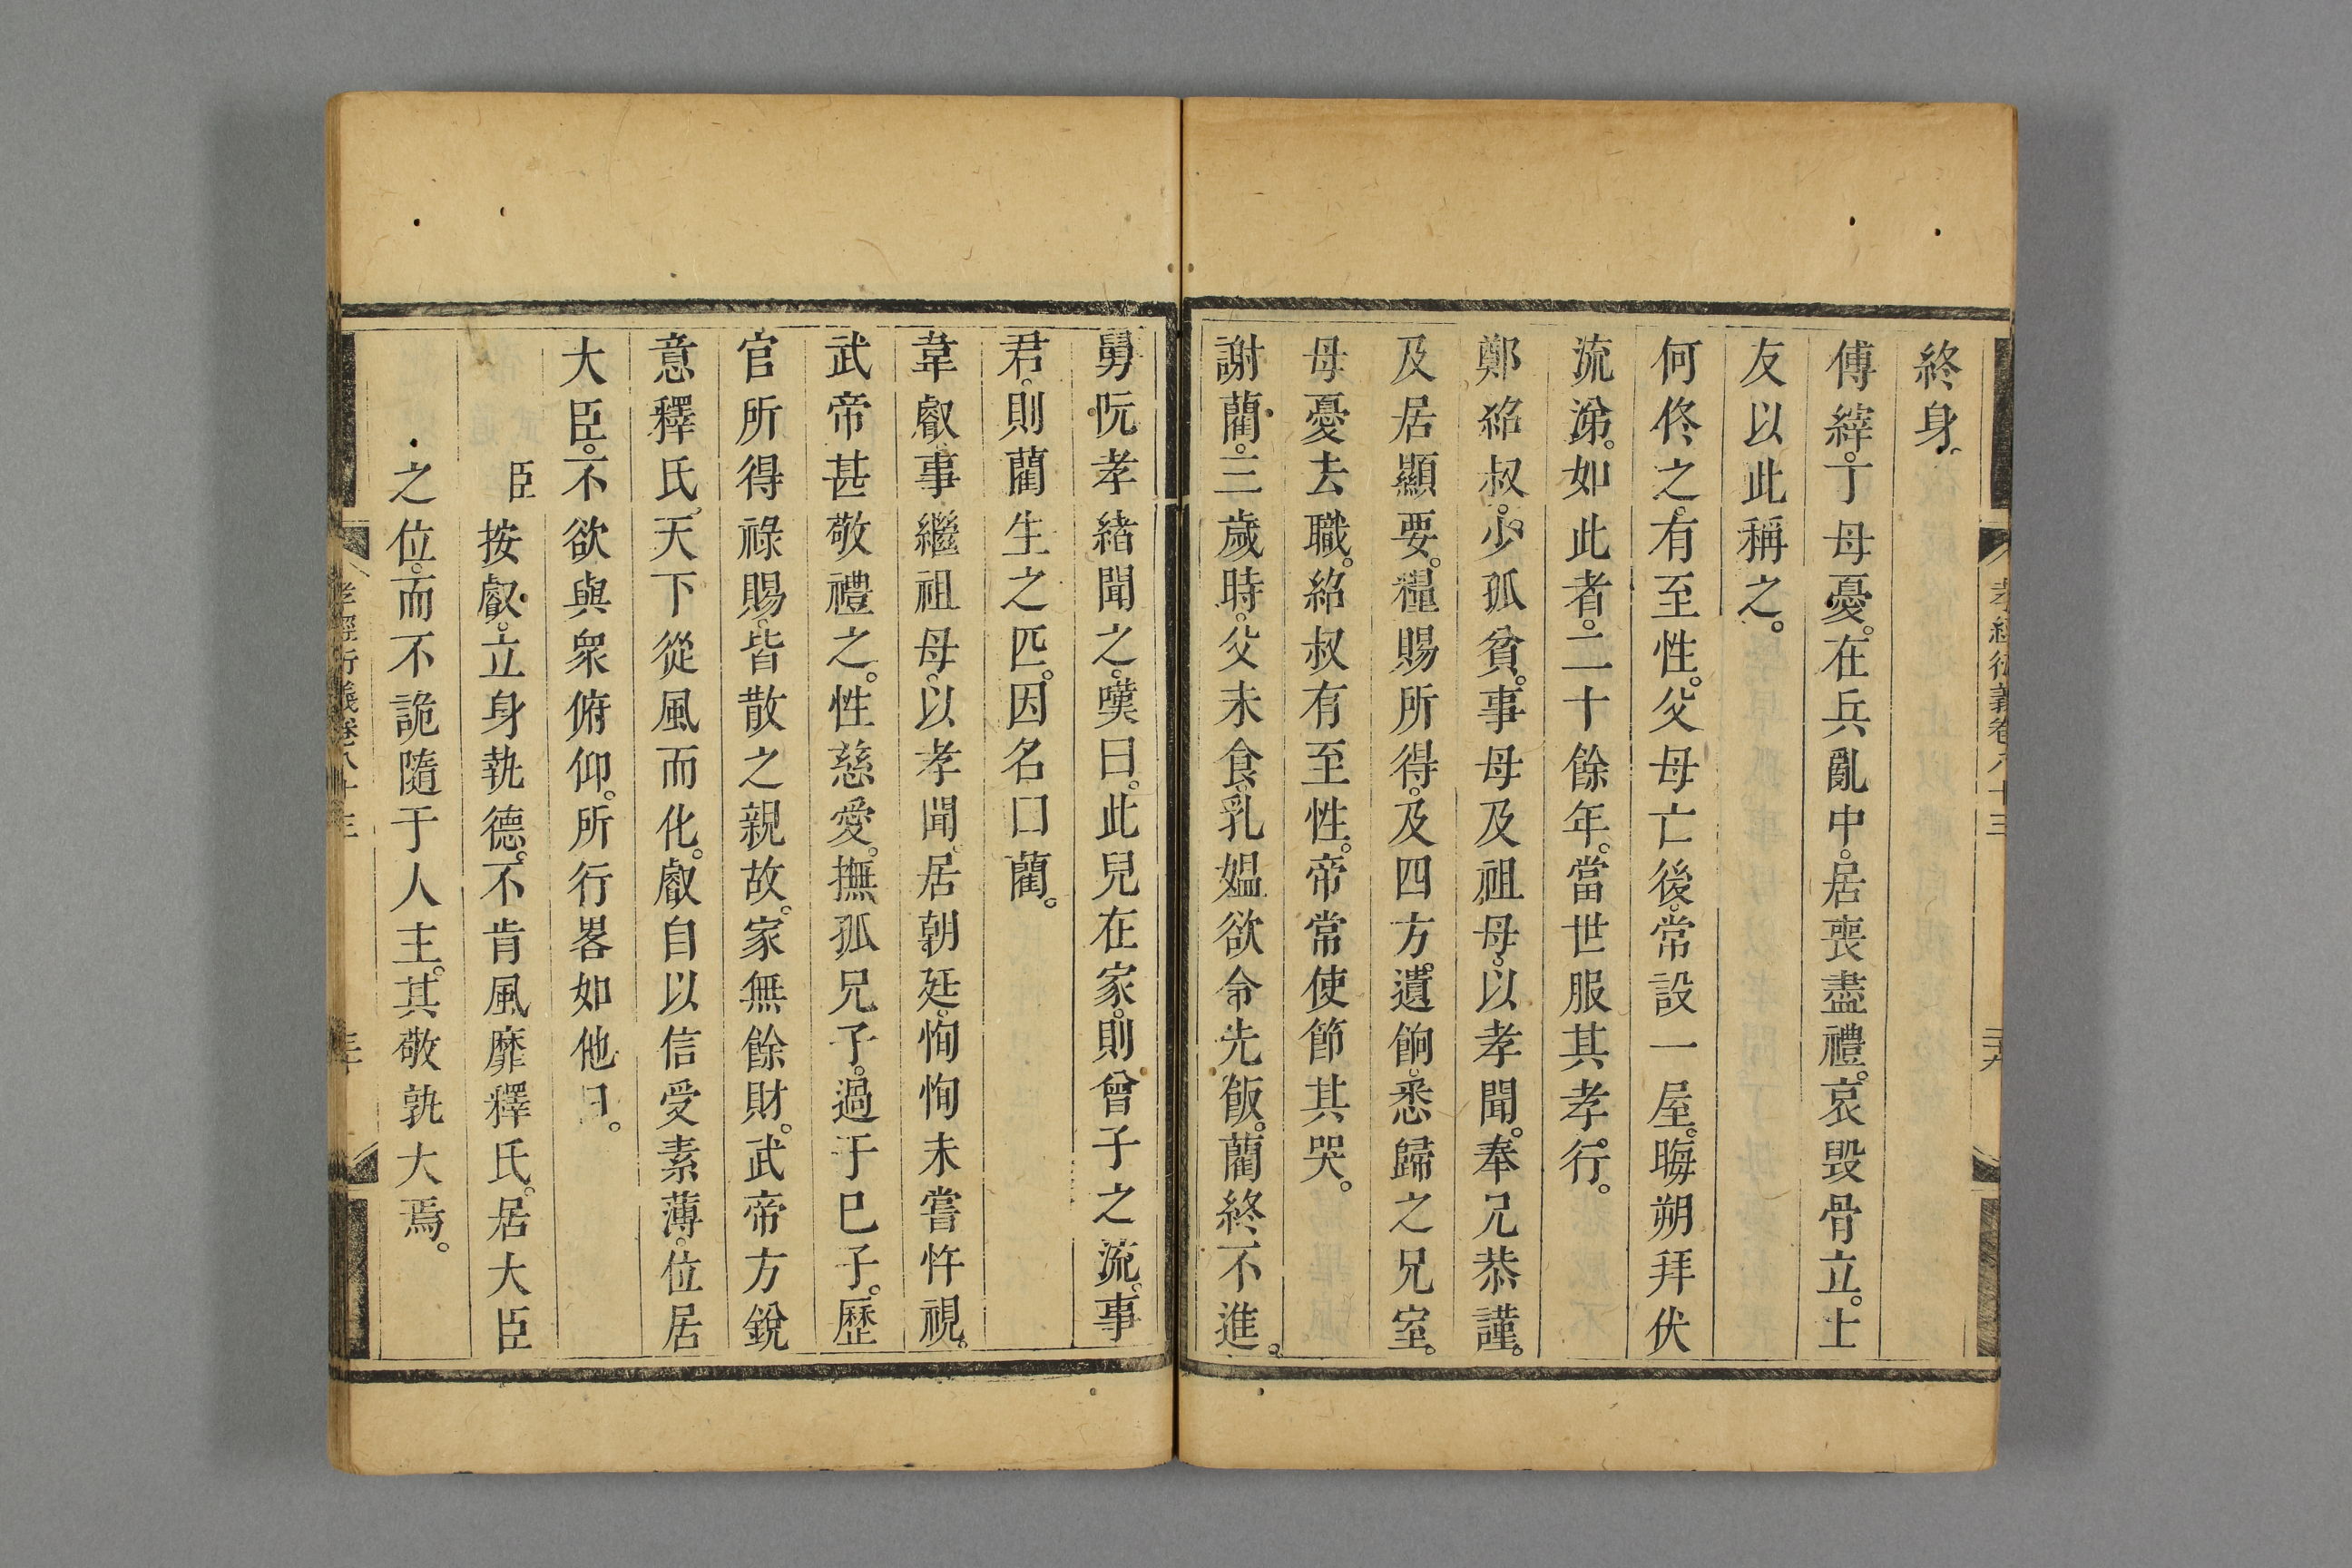 終身。
傅縡。丁母憂。在兵亂中。居喪盡禮。哀毀骨立。士
友以此稱之。
何佟之。有至性。父母亡後。常設一屋。晦朔拜伏
流涕。如此者。二十餘年。當世服其孝行。
鄭紹叔。少孤貧。事母及祖母。以孝聞。奉兄恭謹。
及居顯要。糧賜所得。及四方。遺餉。悉歸之兄室。
母憂去職。紹叔有至性。帝常使節其哭。
謝藺。三歲時。父未食。乳媼欲令先飯。藺終不進。
舅阮孝緒聞之。嘆曰。此兒在家。則曾子之流。事
君。則藺生之匹。因名曰藺。
韋叡。事繼祖母。以孝聞。居朝廷。恂恂未嘗忤視。
武帝甚敬禮之。性慈愛。撫孤兄子。過于己子。歷
官所得祿賜。皆散之親故。家無餘財。武帝方銳
意釋氏。天下從風而化。叡自以信受素薄。位居
大臣。不欲與衆俯仰。所行畧如他日。
臣按叡。立身執德。不肯風靡釋氏。居大臣
之位。而不詭隨于人主。其敬孰大焉。
孝經衍義卷八十三